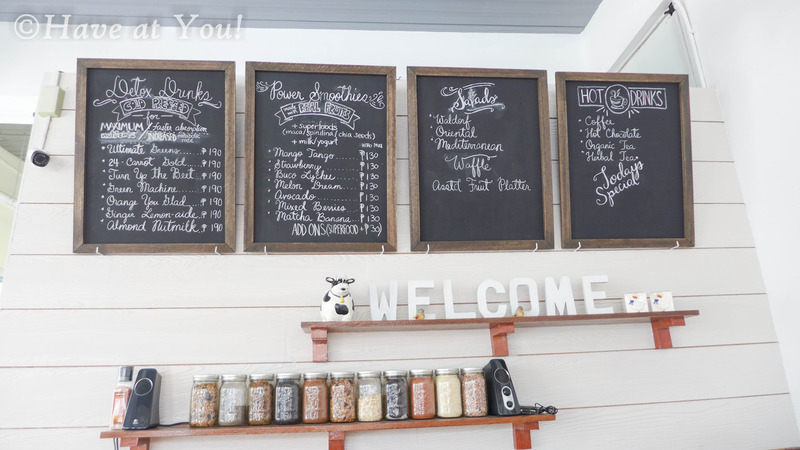 ©Have at You!
Detox Drinks
COLD PRESSED
for
MAXIMUM / faster absorption
INCREASED
Ultimate Greens ₱190
24-Carrot Gold ₱190
Turn Up the Beet ₱190
Green Machine ₱190
Orange You Glad ₱190
Ginger Lemon-aide ₱190
Almond Nutmilk ₱190
Power Smoothies
made with REAL FRUITS
+ superfoods
(maca/spirulina/chia seeds)
+ milk/yogurt
Mango Tango ₱130
Strawberry ₱130
Buco Lychee ₱130
Melon Dream ₱130
Avocado ₱130
Mixed Berries ₱130
Matcha Banana ₱130
ADD ONS (SUPERFOOD +₱30)
Salads
Waldorf
Oriental
Mediterranean
Waffle
Asst'd Fruit Platter
HOT DRINKS
Coffee
Hot Chocolate
Organic Tea
Herbal Tea
Todays
Special
WELCOME